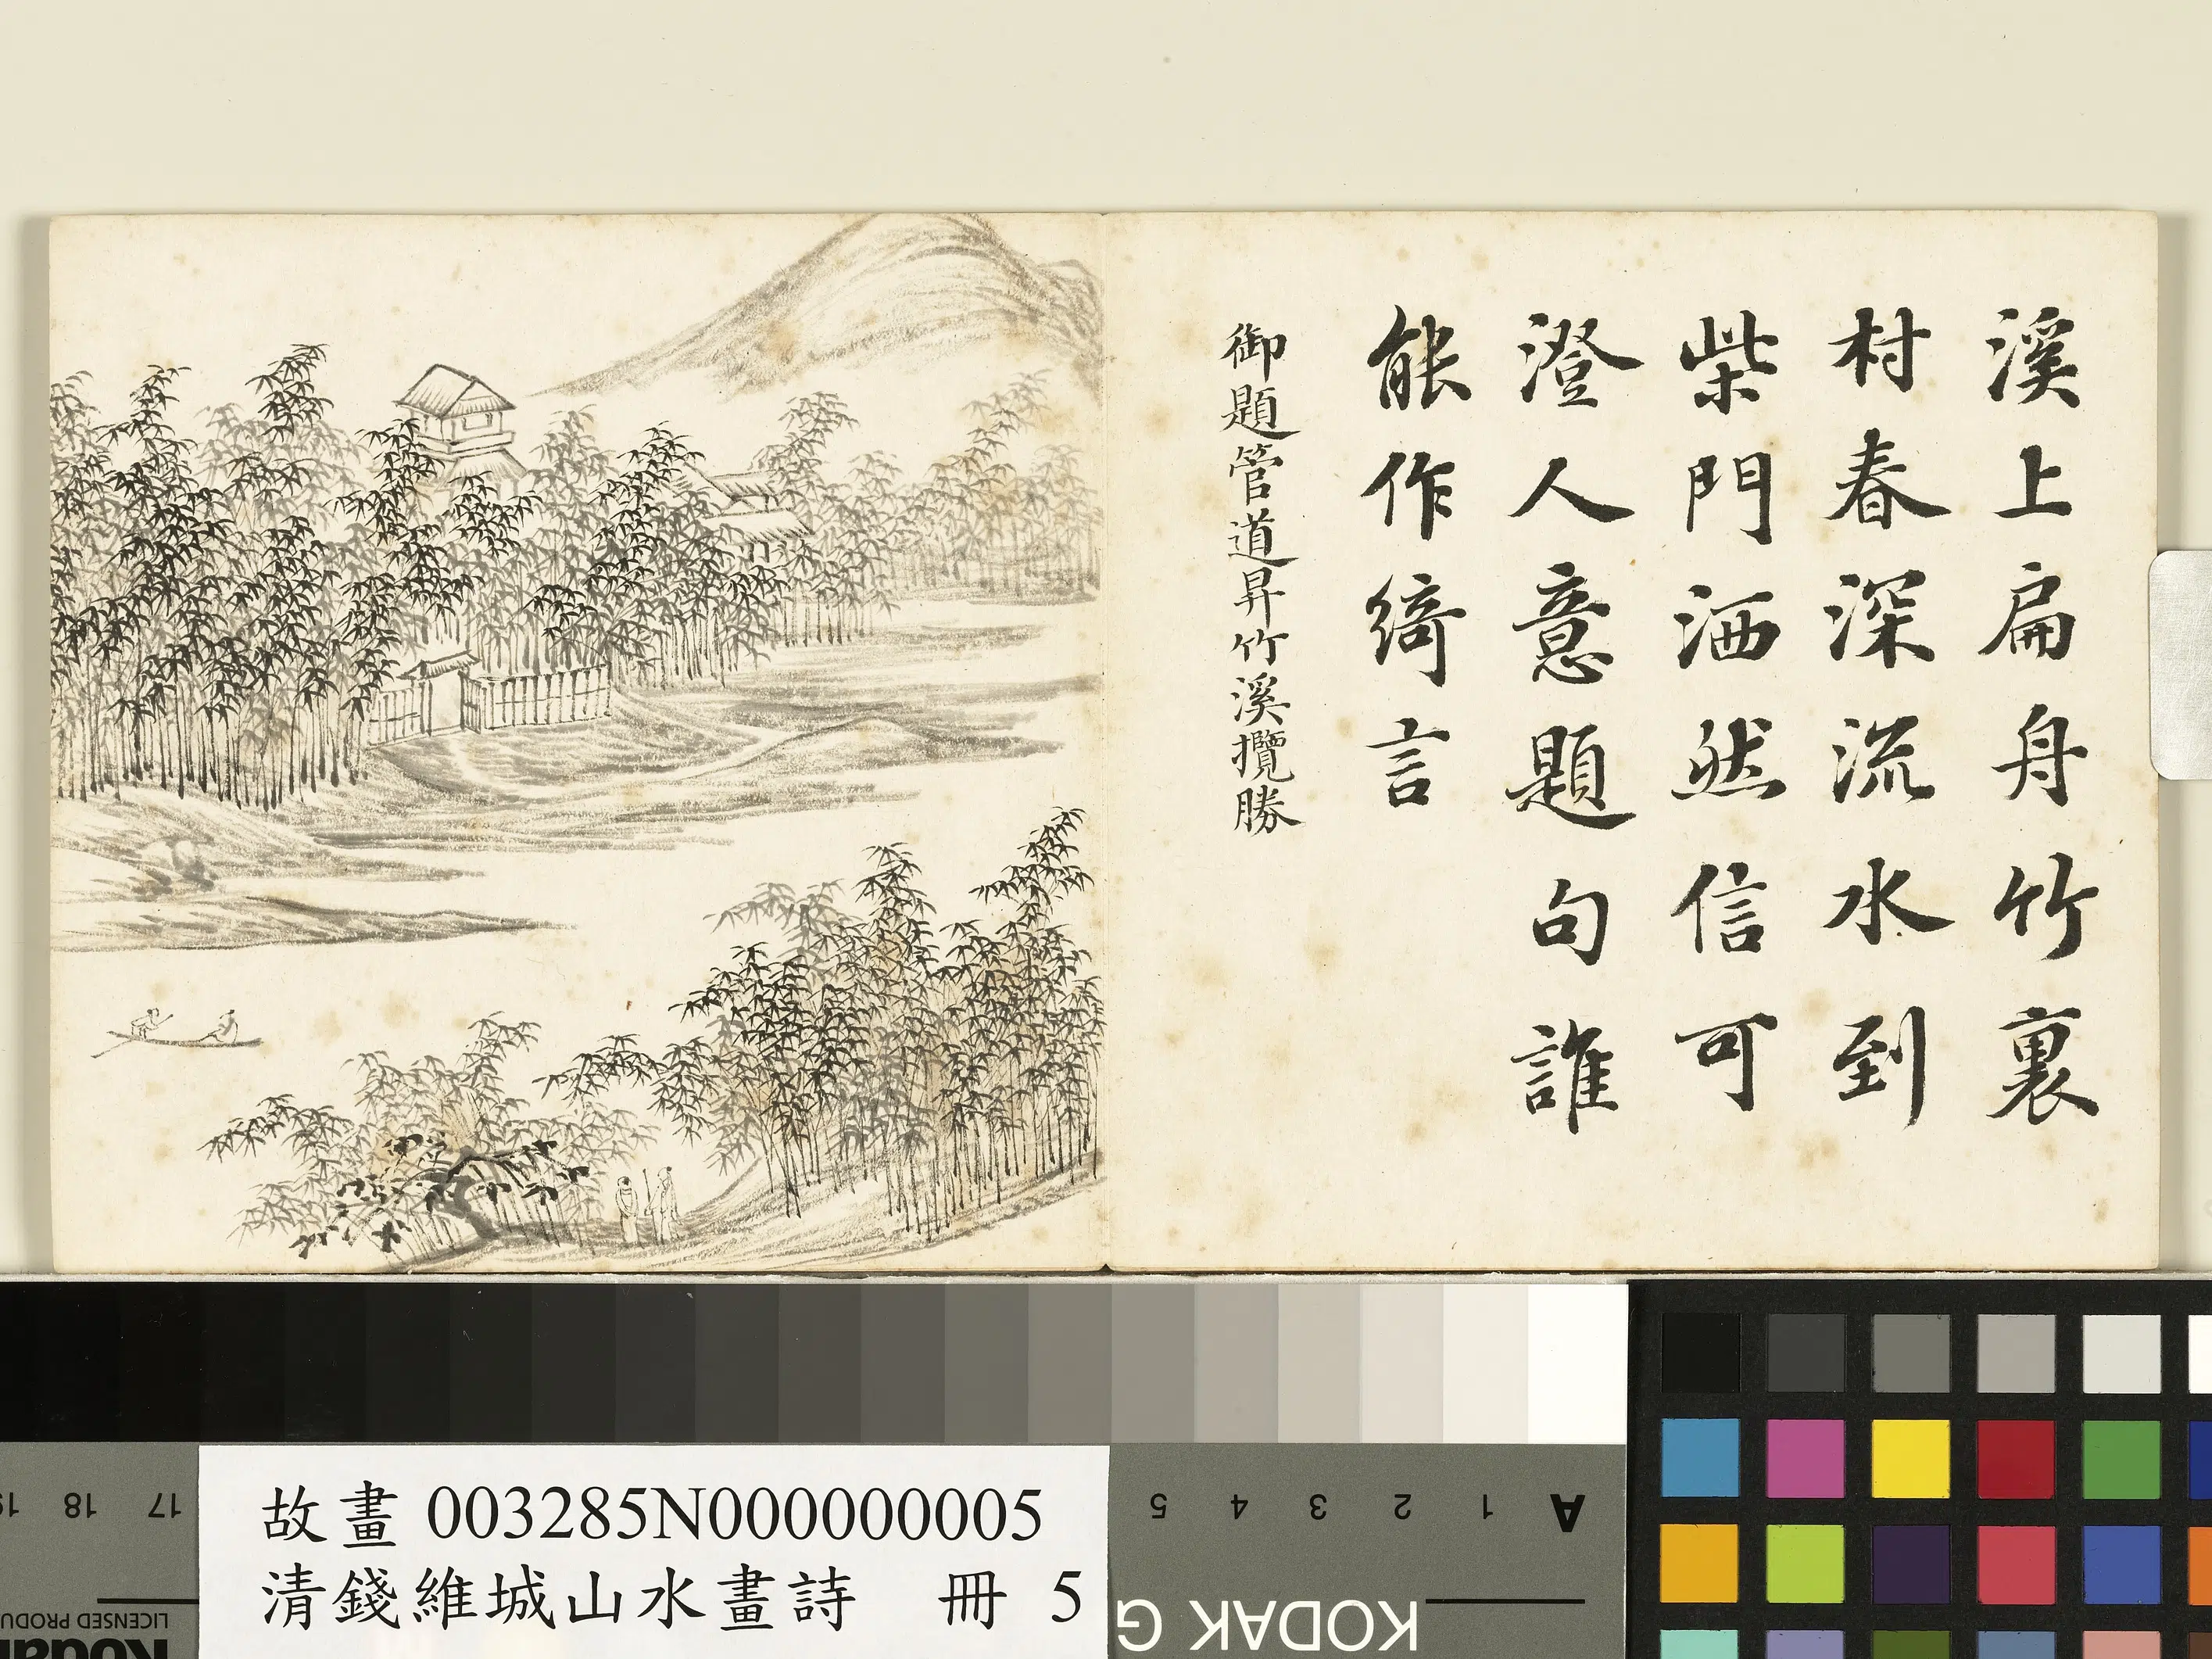 溪上扁舟竹裏
村春深流水到
柴門洒然信可
澄人意題句誰
能作綺言
御題管道昇竹溪攬勝
故畫 003285N000000005
清錢維城山水畫詩 冊 5
19 18 17
5 4 3 2 1 A
KODAK G
LICENSED PRODU
Kodak